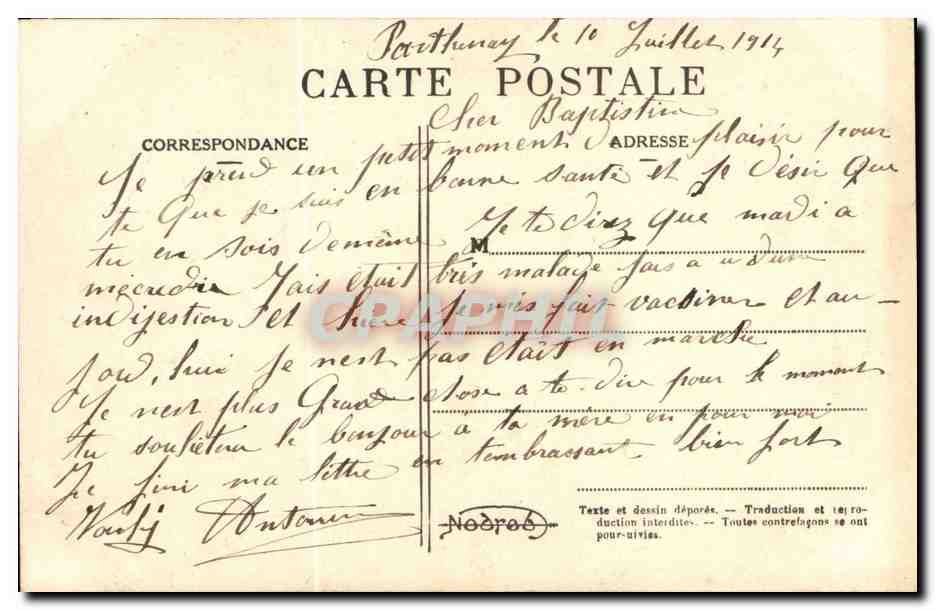 Parthenay le 10 Juillet 1914
CARTE POSTALE
Cher Baptistin
CORRESPONDANCE
ADRESSE
Je prend un petit moment de plaisir pour
te que je suis en bonne santé et je désir que
tu en sois de même Je te direz que mardi a
M
mecredi J'ais etait tres malade fais a d'une
indijestion et hiere Je mis fait vacciner et au-
jourd, hui je nest pas etait en marche
Je nest plus Grand chose a te dire pour le moment
tu souhietera le bonjour a ta mère en pour moi
Je fini ma lettre en tembrassant bien fort
Antonin
Noered
CPAPHIL
Texte et dessin déposés. — Traduction et repro-
duction interdites. — Toutes contrefaçons se ont
pour-uivies.